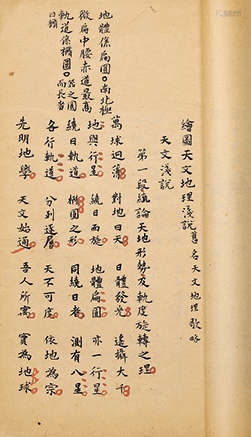 繪圖天文地理淺說 舊名天文地理歌略
天文淺說
第一段總論天地形勢及軌度旋轉之理
地體係扁圓。南北極
微扁中腰赤道最高
軌道係橢圓。
萬球迴薄 對地曰天 日體發光 遠攝大千
地與行星 繞日而旋 地體扁圓 亦一行星
繞日軌道 橢圓之形 同繞日者 測有八星
各行軌道 分列逐層 天不可度 依地為宗
先明地學 天文始通 吾人所寓 實為地球